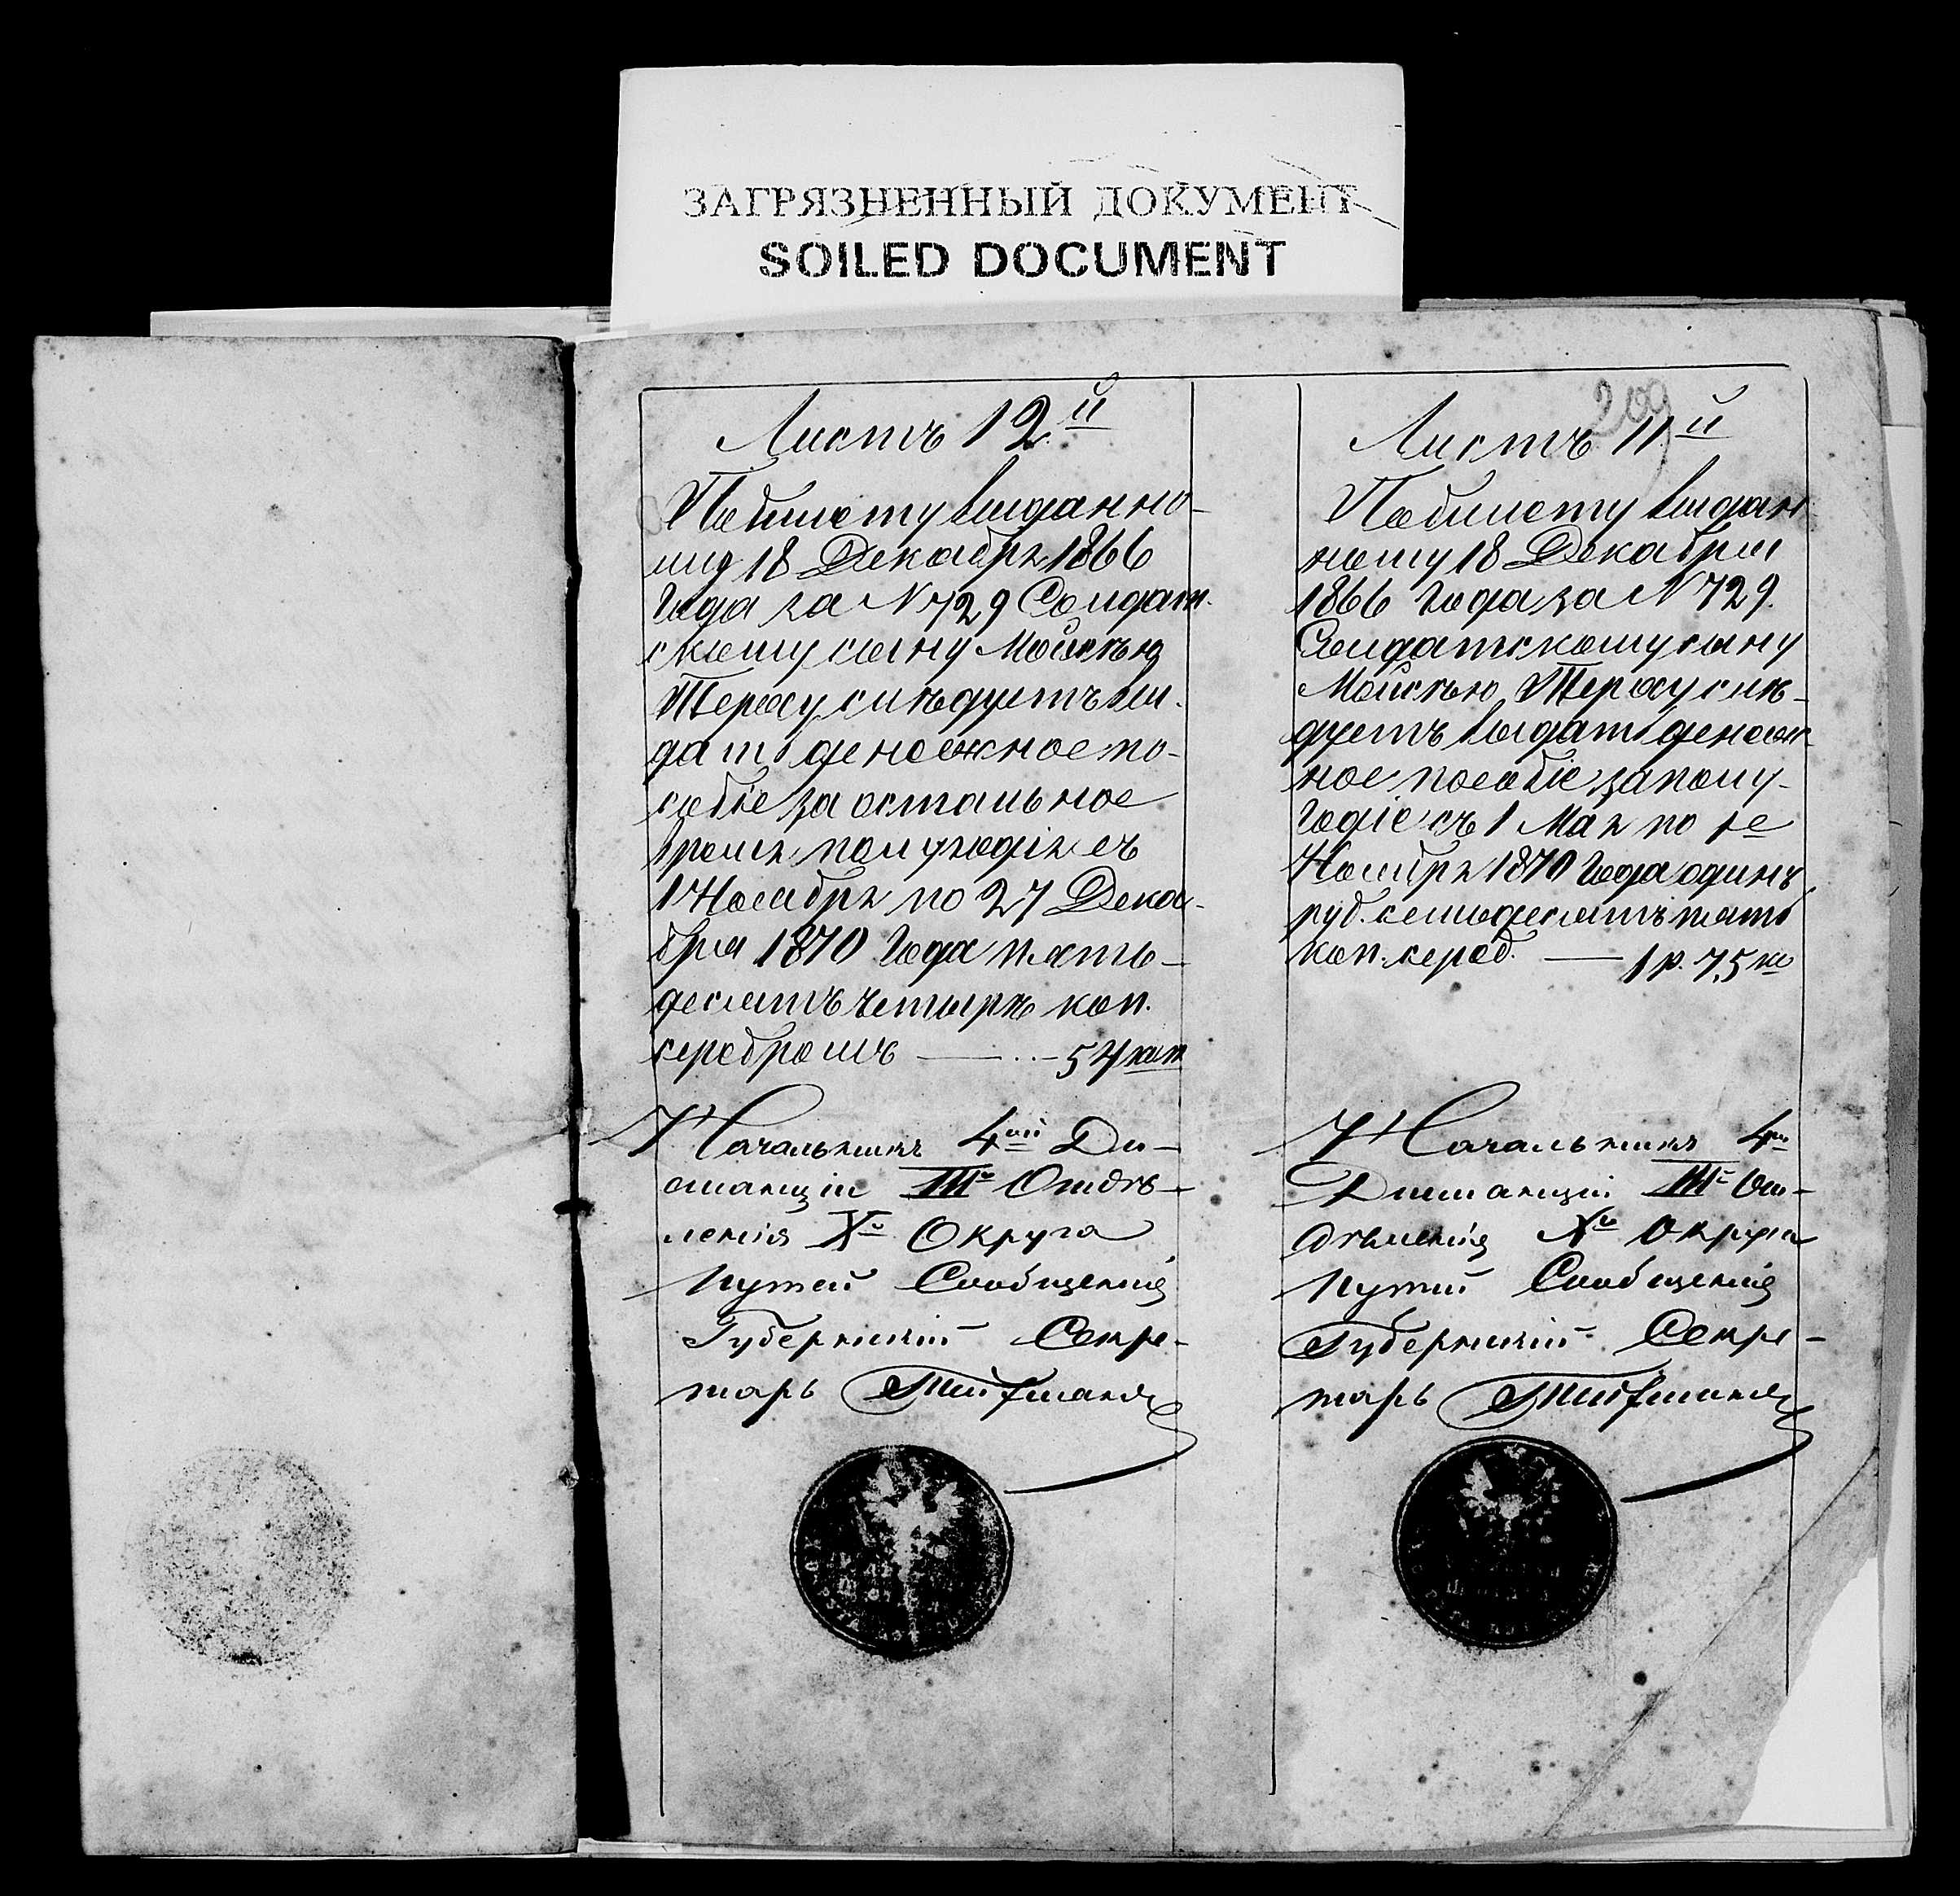 ЗАГРЯЗНЕННЫЙ ДОКУМЕНТ
SOILED DOCUMENT
Листъ 12й
По билету выданно-
му 18 Декабря 1866
Года за N 729 Солдат-
скому сыну Мойсѣю
Терасу слѣдуетъ вы-
дать денежное по-
собіе за остальное
время полугодія съ
1 Ноября по 27 Дека-
бря 1870 Года пять-
десятъ четыре коп.
серебромъ — 54 коп
Начальникъ 4ой Ди-
станціи IIIго Отдѣ-
ленія Xго Округа
Путей Сообщенія
Губернскій Секре-
тарь
209
Листъ 11й
По билету выдан
ному 18 Декабря
1866 Года за N 729.
Солдатскому сыну
Мойсѣю Терасу слѣ-
дуетъ выдать денеж-
ное пособіе за полу-
годіе съ 1 Мая по 1е
Ноября 1870 Года одинъ
руб. семьдесятъ пять
коп. сереб. — 1 р. 75 ко
Начальникъ 4ой
Дистанціи IIIго От-
дѣленія Xго Округа
Путей Сообщенія
Губернскій Секре-
тарь